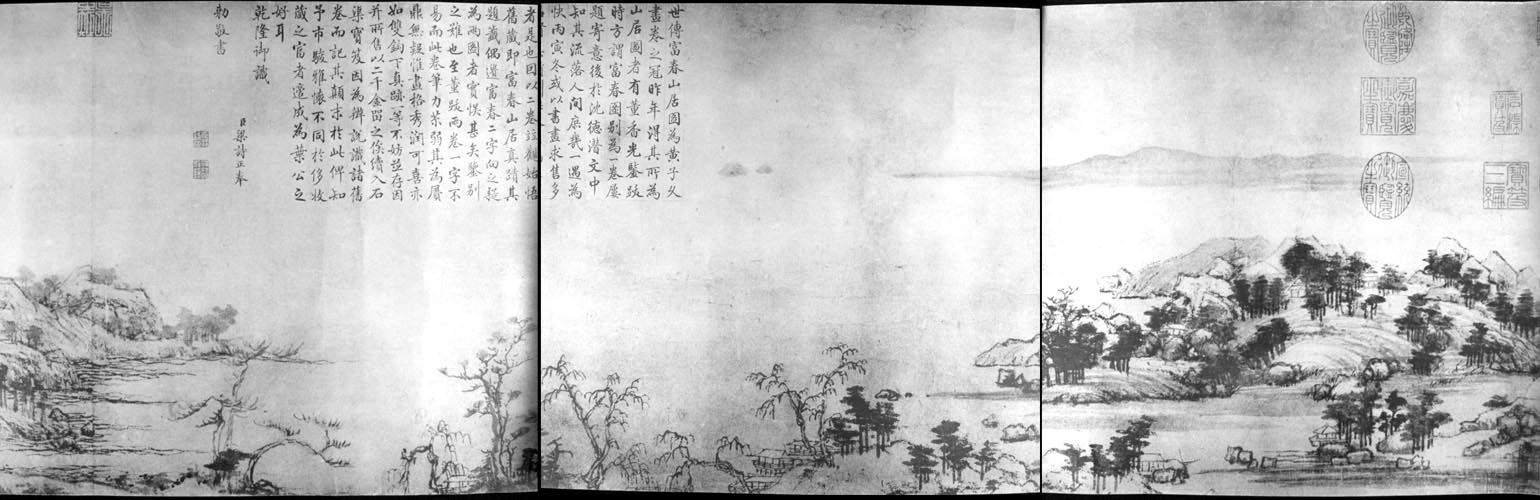 石渠寶笈
寶笈三編
乾隆御覽之寶
嘉慶御覽之寶
宣統御覽之寶
世傳富春山居圖為黄子久
畫卷之冠昨年得其所為
山居圖者有董香光鑒跋
時方謂富春圖别為一卷屢
題寄意後於沈德潛文中
知其流落人間庶幾一遇為
快丙寅冬或以書畫求售多
者是也因以二卷並觀始悟
舊藏即富春山居真蹟其
題籤偶遺富春二字向之疑
為兩圖者實悮甚矣鑒别
之難也至董跋兩卷一字不
易而此卷筆力苶弱其為贗
鼎無疑惟畫格秀潤可喜亦
如雙鉤下真跡一等不妨並存因
并所售以二千金留之俟續入石
渠寶笈因為辨説識諸舊
卷而記其顛末於此俾知
予市駿雅懐不同於侈收
藏之官者遽成為葉公之
好耳
乾隆御識
臣梁詩正奉
勅敬書